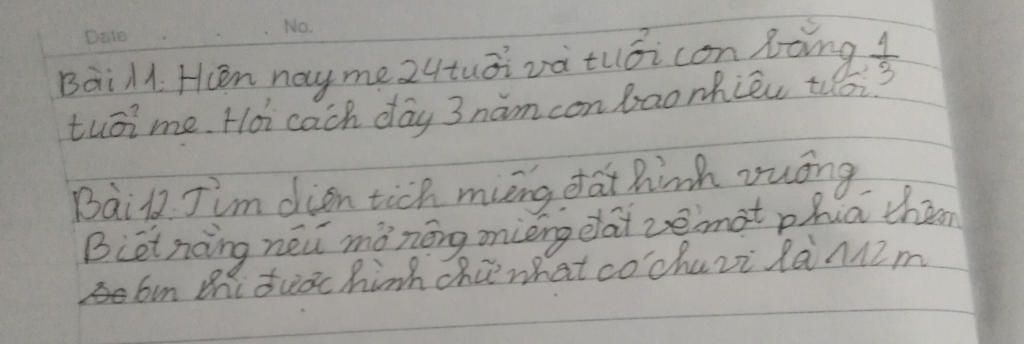 Date No.
Bài 11: Hiện nay mẹ 24 tuổi và tuổi con bằng 1/3
tuổi mẹ. Hỏi cách đây 3 năm con bao nhiêu tuổi?
Bài 12. Tìm diện tích miếng đất hình vuông
Biết rằng nếu mở rộng miếng đất về một phía thêm
6m thì được hình chữ nhật có chu vi là 112m